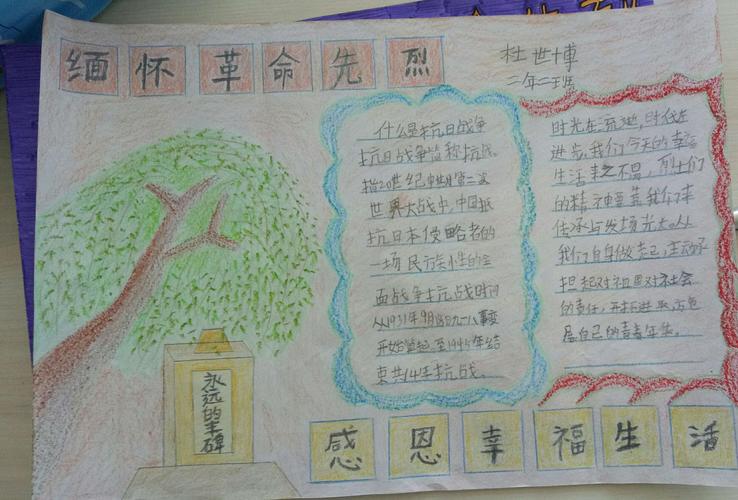 缅怀革命先烈
杜世博
二年二班
什么是抗日战争
抗日战争简称抗战
指20世纪中期第二次
世界大战中,中国抵
抗日本侵略者的
一场民族性的全
面战争抗战时间
从1931年9月18日九一八事变
开始算起至1945年结
束共14年抗战.
时光在流逝,时代在
进步,我们今天的幸福
生活来之不易,烈士们
的精神要靠我们来
传承与发扬光大。从
我们自身做起,主动承
担起对祖国对社会
的责任,开拓进取
属自己的青春年华。
永远的丰碑
感恩幸福生活